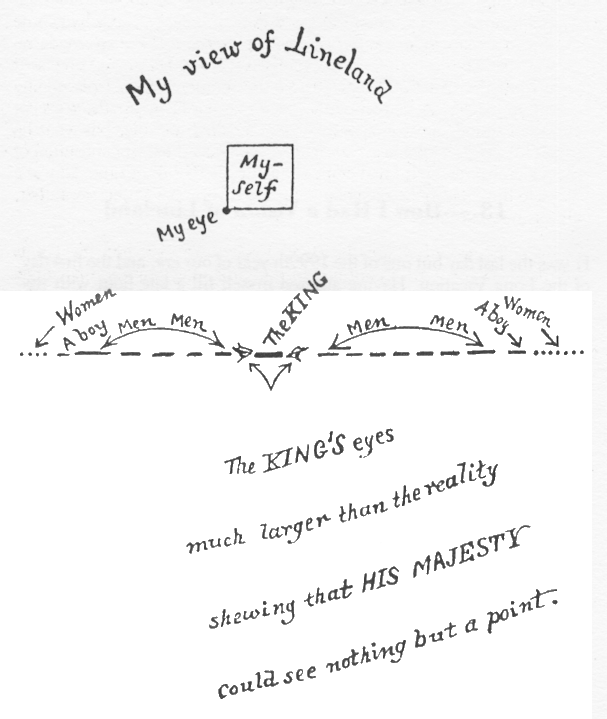 My view of Lineland
My-
self
My eye
Women
A boy
Men
Men
The KING
Men
men
A boy
Women
The KING'S eyes
much larger than the reality
shewing that HIS MAJESTY
could see nothing but a point.